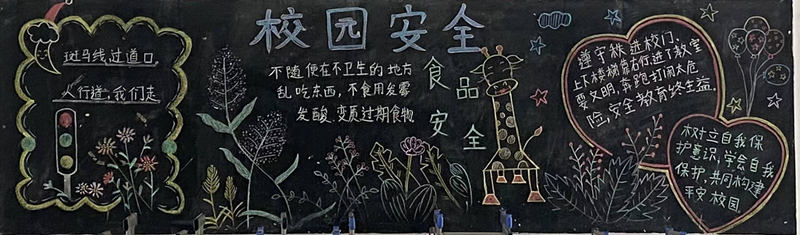 校园安全
斑马线,过道口,
人行道,我们走
不随便在不卫生的地方
乱吃东西,不食用发霉
发酸、变质过期食物
食品
安全
遵守秩进校门、
上下楼梯靠右行进了教室
要文明,奔跑打闹太危
险,安全教育终生益.
树立自我保
护意识,学会自我
保护,共同构建
平安校园